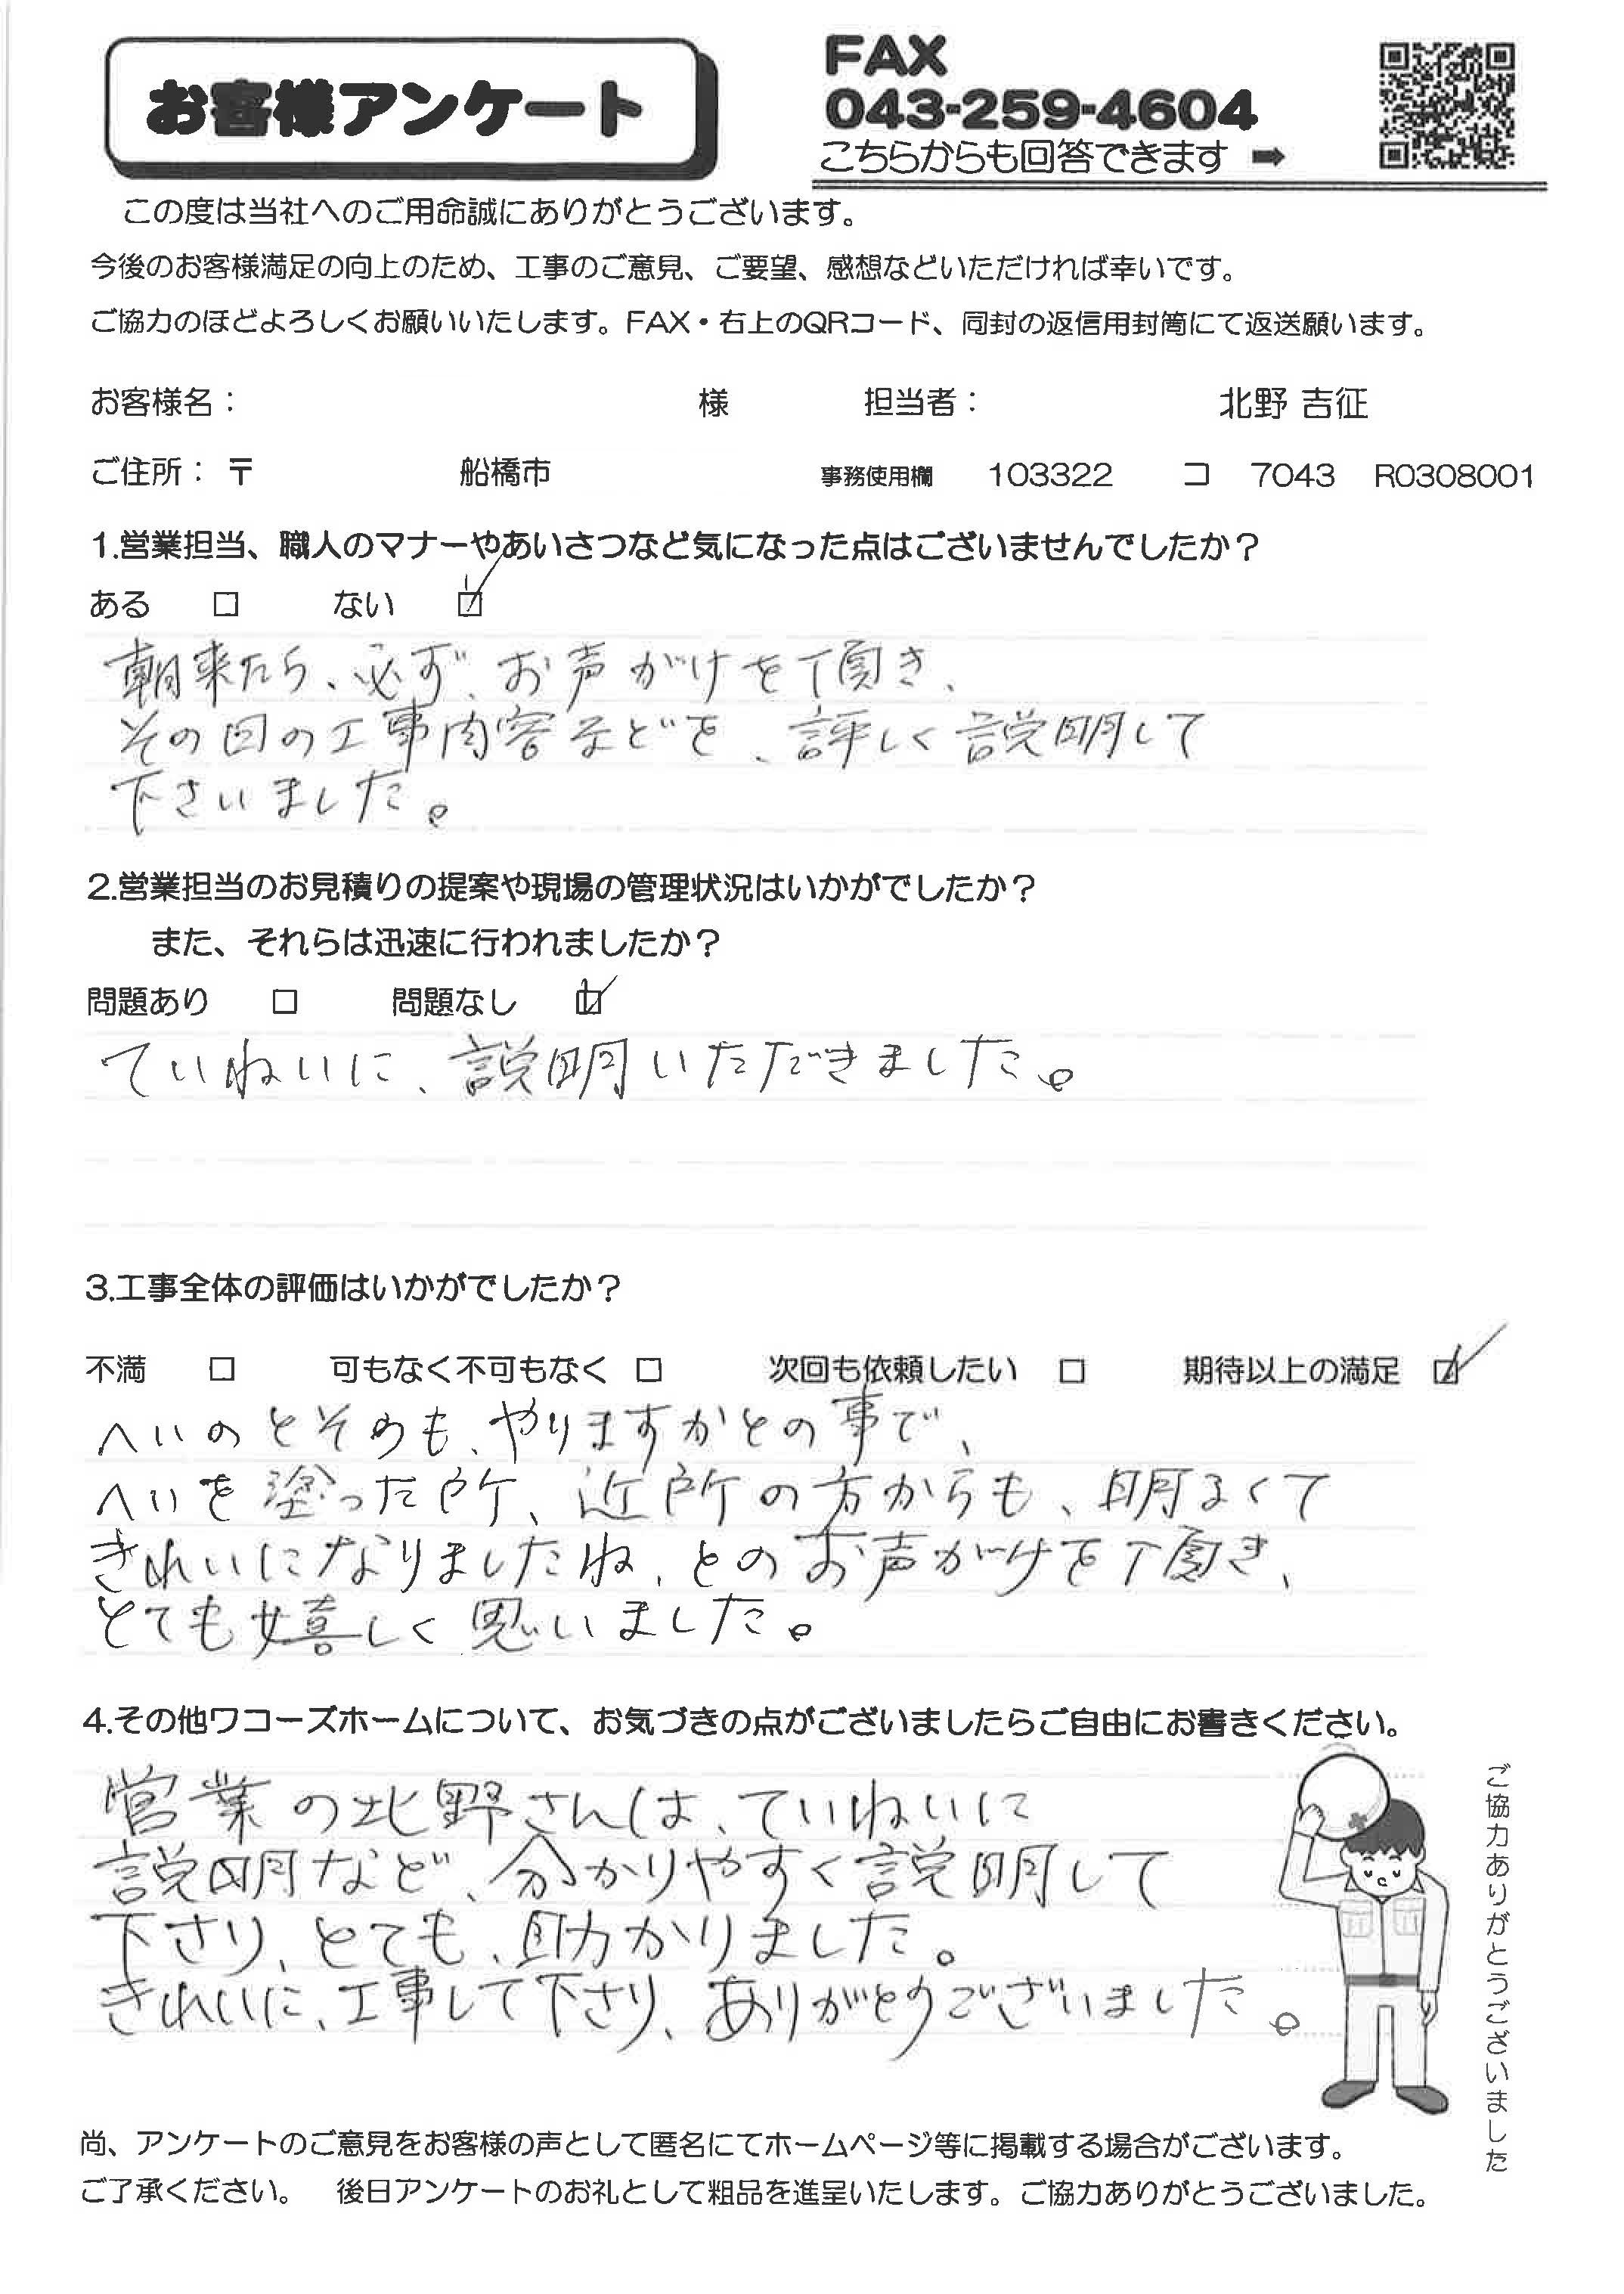 お客様アンケート
FAX
043-259-4604
こちらからも回答できます ➡
この度は当社へのご用命誠にありがとうございます。
今後のお客様満足の向上のため、工事のご意見、ご要望、感想などいただければ幸いです。
ご協力のほどよろしくお願いいたします。FAX・右上のQRコード、同封の返信用封筒にて返送願います。
お客様名： 様 担当者： 北野 吉征
ご住所：〒 船橋市 事務使用欄 103322 コ 7043 R0308001
1.営業担当、職人のマナーやあいさつなど気になった点はございませんでしたか？
ある □ ない ☑
朝来たら、必ず、お声がけを頂き、
その日の工事内容などを、詳しく説明して
下さいました。
2.営業担当のお見積りの提案や現場の管理状況はいかがでしたか？
また、それらは迅速に行われましたか？
問題あり □ 問題なし ☑
ていねいに、説明いただきました。
3.工事全体の評価はいかがでしたか？
不満 □ 可もなく不可もなく □ 次回も依頼したい □ 期待以上の満足 ☑
へいのとそのも、やりますかとの事で、
へいを塗った所、近所の方からも、明るくて
きれいになりましたね、とのお声がけを頂き、
とても嬉しく思いました。
4.その他ワコーズホームについて、お気づきの点がございましたらご自由にお書きください。
営業の北野さんは、ていねいに
説明など、分かりやすく説明して
下さり、とても、助かりました。
きれいに、工事して下さり、ありがとうございました。
ご協力ありがとうございました
尚、アンケートのご意見をお客様の声として匿名にてホームページ等に掲載する場合がございます。
ご了承ください。 後日アンケートのお礼として粗品を進呈いたします。ご協力ありがとうございました。